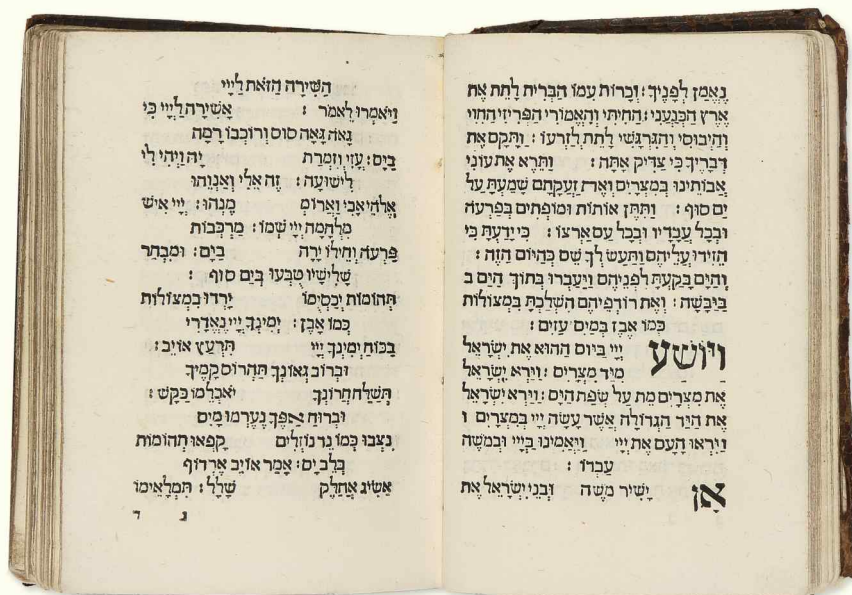 נֶאֱמָן לְפָנֶיךָ : וְכָרוֹת עִמּוֹ הַבְּרִית לָתֵת אֶת
אֶרֶץ הַכְּנַעֲנִי : הַחִיתִּי וְהָאֱמוֹרִי הַפְּרִיזִי הַחִוִּי
וְהַיְבוּסִי וְהַגִּרְגָּשִׁי לָתֵת לְזַרְעוֹ : וַתָּקֶם אֶת
דְּבָרֶיךָ כִּי צַדִּיק אָתָּה : וַתֵּרֶא אֶת עוֹנִי
אֲבוֹתֵינוּ בְּמִצְרַיִם וְאֶת זַעֲקָתָם שָׁמַעְתָּ עַל
יַם סוּף : וַתִּתֵּן אוֹתוֹת וּמוֹפְתִים בְּפַרְעֹה
וּבְכָל עֲבָדָיו וּבְכָל עַם אַרְצוֹ : כִּי יָדַעְתָּ כִּי
הֵזִידוּ עֲלֵיהֶם וַתַּעַשׂ לְךָ שֵׁם כְּהַיּוֹם הַזֶּה :
וְהַיָּם בָּקַעְתָּ לִפְנֵיהֶם וַיַּעַבְרוּ בְתוֹךְ הַיָּם ב
בַּיַּבָּשָׁה : וְאֶת רוֹדְפֵיהֶם הִשְׁלַכְתָּ בִּמְצוֹלוֹת
כְּמוֹ אֶבֶן בְּמַיִם עַזִּים :
וַיּוֹשַׁע יְיָי בַּיּוֹם הַהוּא אֶת יִשְׂרָאֵל
מִיַּד מִצְרָיִם : וַיַּרְא יִשְׂרָאֵל
אֶת מִצְרַיִם מֵת עַל שְׂפַת הַיָּם : וַיַּרְא יִשְׂרָאֵל
אֶת הַיָּד הַגְּדוֹלָה אֲשֶׁר עָשָׂה יְיָי בְּמִצְרַיִם ו
וַיִּרְאוּ הָעָם אֶת יְיָי וַיַּאֲמִינוּ בַּיְיָי וּבְמֹשֶׁה
עַבְדּוֹ :
אָז יָשִׁיר מֹשֶׁה וּבְנֵי יִשְׂרָאֵל אֶת
הַשִּׁירָה הַזֹּאת לַיְיָי
וַיֹּאמְרוּ לֵאמֹר : אָשִׁירָה לַיְיָי כִּי
גָאֹה גָּאָה סוּס וְרוֹכְבוֹ רָמָה
בַיָּם : עָזִּי וְזִמְרָת יָהּ וַיְהִי לִי
לִישׁוּעָה : זֶה אֵלִי וְאַנְוֵהוּ
אֱלֹהֵי אָבִי וַאֲרוֹמְ מֶנְהוּ : יְיָי אִישׁ
מִלְחָמָה יְיָי שְׁמוֹ : מַרְכְּבוֹת
פַּרְעֹה וְחֵילוֹ יָרָה בַיָּם : וּמִבְחַר
שָׁלִישָׁיו טֻבְּעוּ בְּיַם סוּף :
תְּהוֹמוֹת יְכַסְיֻמוּ יָרְדוּ בִמְצוֹלוֹת
כְּמוֹ אָבֶן : יְמִינְךָ יְיָי נֶאֱדָּרִי
בַּכּוֹחַ יְמִינְךָ יְיָי תִּרְעַץ אוֹיֵב :
וּבְרוֹב גְּאוֹנְךָ תַּהֲרוֹס קָמֶיךָ
תְּשַׁלַּח חֲרוֹנְךָ יֹאכְלֵמוֹ כַּקַּשׁ :
וּבְרוּחַ אַפֶּךָ נֶעֶרְמוּ מַיִם
נִצְּבוּ כְמוֹ נֵד נוֹזְלִים קָפְאוּ תְהוֹמוֹת
בְּלֵב יָם : אָמַר אוֹיֵב אֶרְדּוֹף
אַשִּׂיג אֲחַלֵּק שָׁלָל : תִּמְלָאֵימוֹ
ג ד